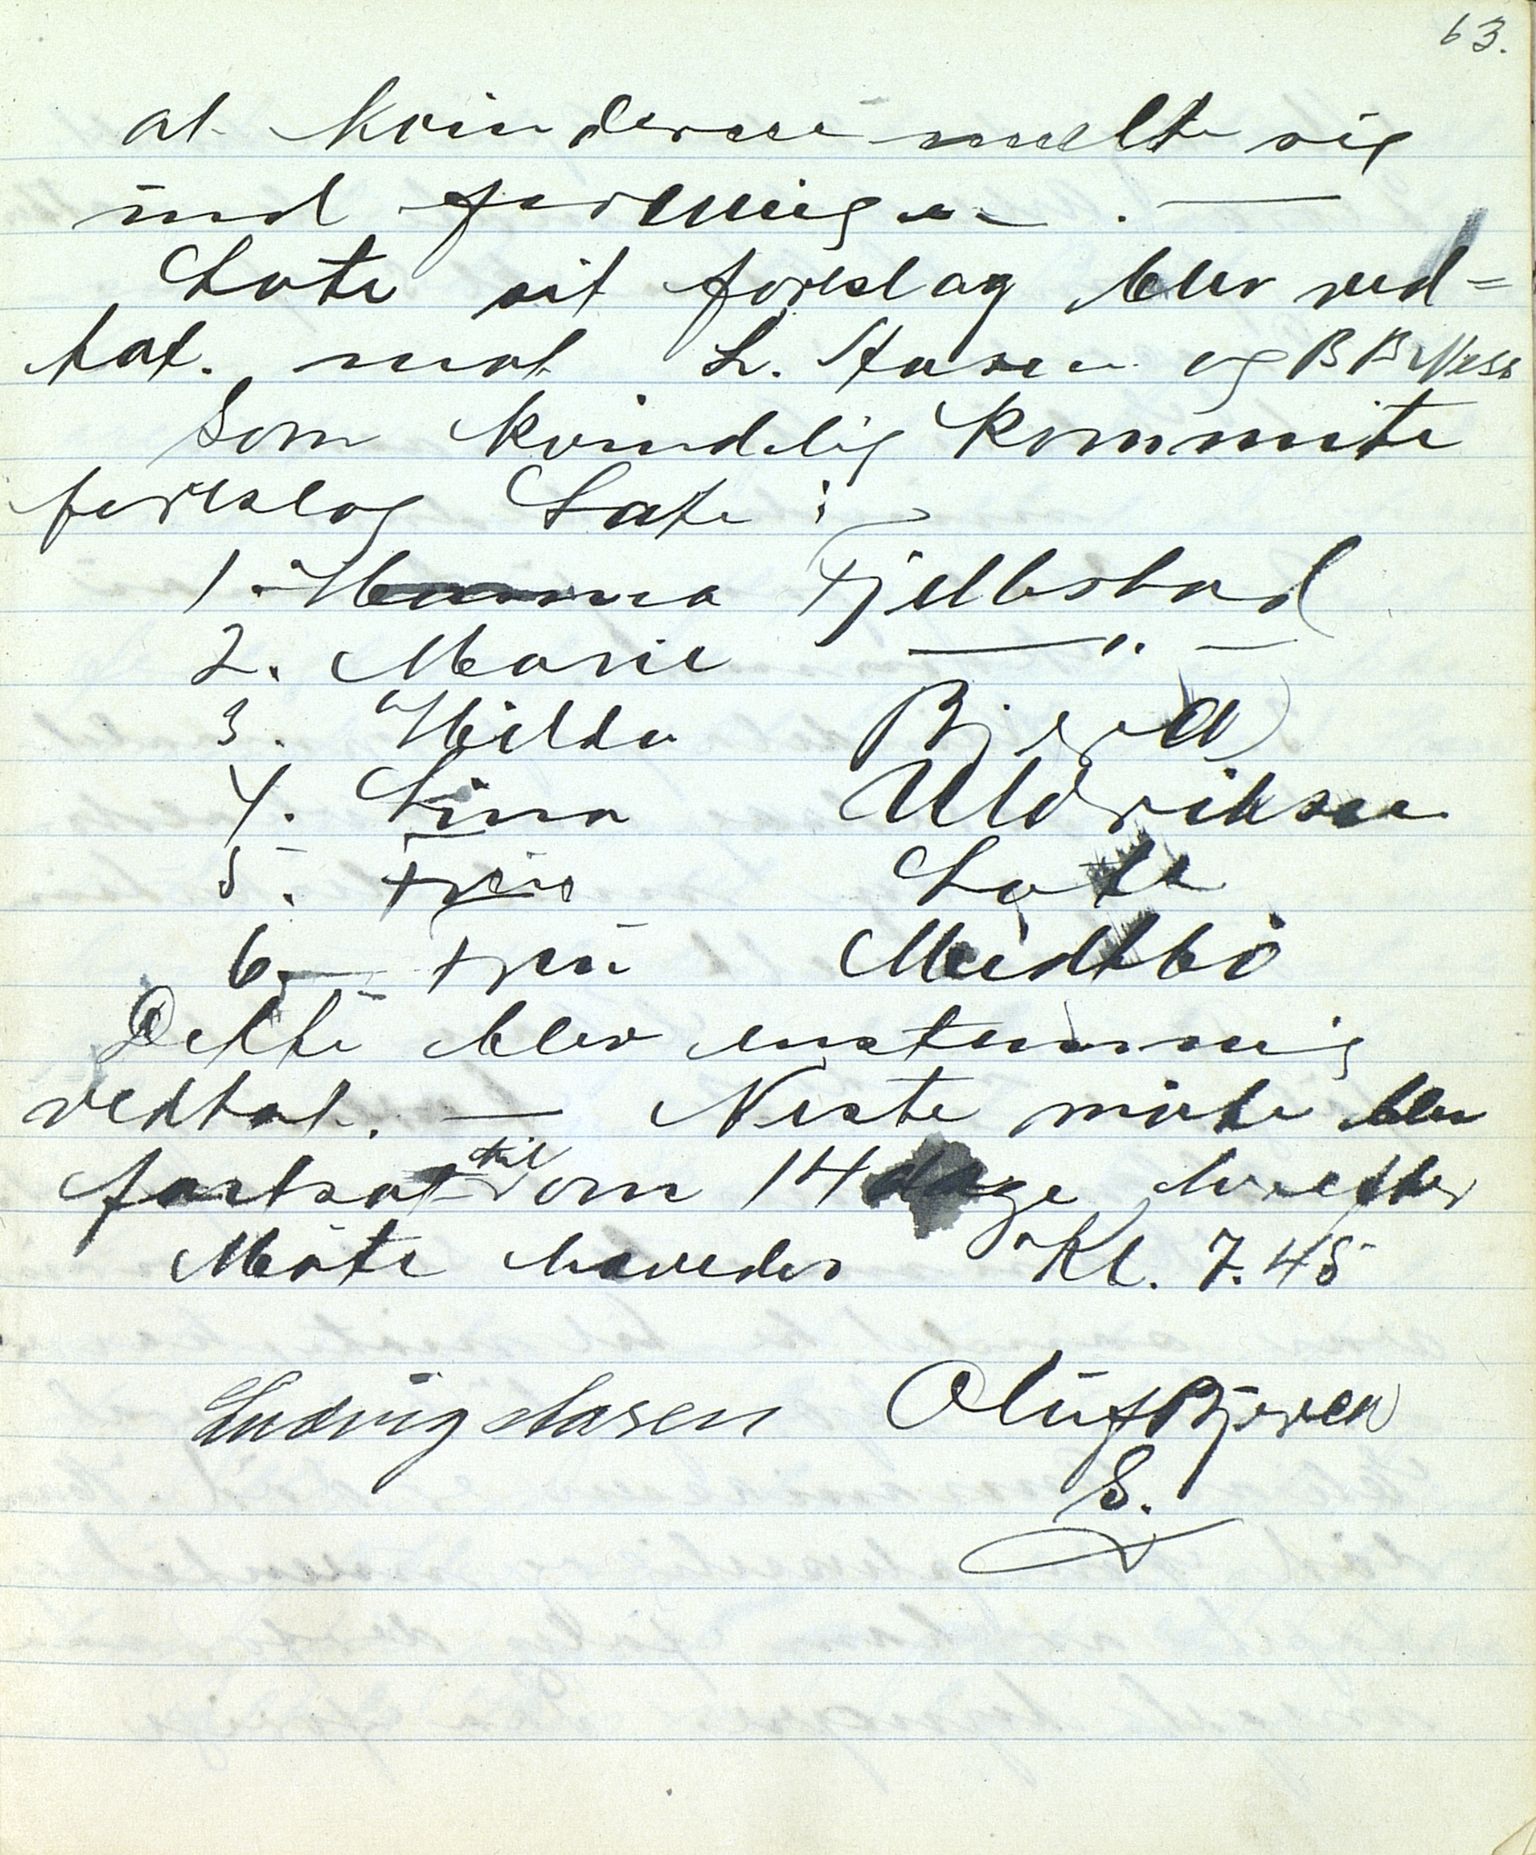 63.
at kvinderne melte sig
ind foreningen. —
Lote sit foreslag blev ved=
tat. mot L. Aasen og B B Ness
Som kvindelig kommite
foreslog Lote:
1. Hanna Fjellestad
2. Marie —"—
3. Hilda Bjerva
4. Lina Uldriksen
5. Fru Lote
6. Fru Meidtbö
Dette blev enstemmig
vedtat. — Neste möte blev
fastsat til om 14 dage hvoretter
Möte hævedes Kl. 7.45
Ludvig Aasen Oluf Bjerva
S.